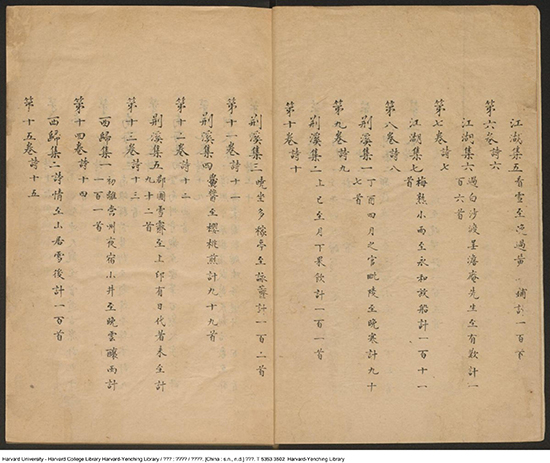 江湖集五看雪至晚過黃一鋪計一百下
第六卷詩六
江湖集六過白沙渡至澹菴先生至有歎計一
百六首
第七卷詩七
江湖集七梅熟小雨至永和放船計一百十一
首
第八卷詩八
荆溪集一丁酉四月之官毗陵至晚寒計九十
七首
第九卷詩九
荆溪集二上巳至月下果飲計一百一首
第十卷詩十
荆溪集三晚坐多稼亭至詠計一百二首
第十一卷詩十一
荆溪集四至櫻桃煎計九十九首
第十二卷詩十二
荆溪集五郡圃雪霽至上印有日代者未至計
九十二首
第十三卷詩十三
西歸集一初離常州夜宿小井至晚雲釀雨計
一百一首
第十四卷詩十四
西歸集二詩情至山居雪後計一百首
第十五卷詩十五
Harvard University - Harvard College Library Harvard-Yenching Library / ??? : ???? / ????. [China : s.n., n.d.] ???. T 5353 3502 Harvard-Yenching Library